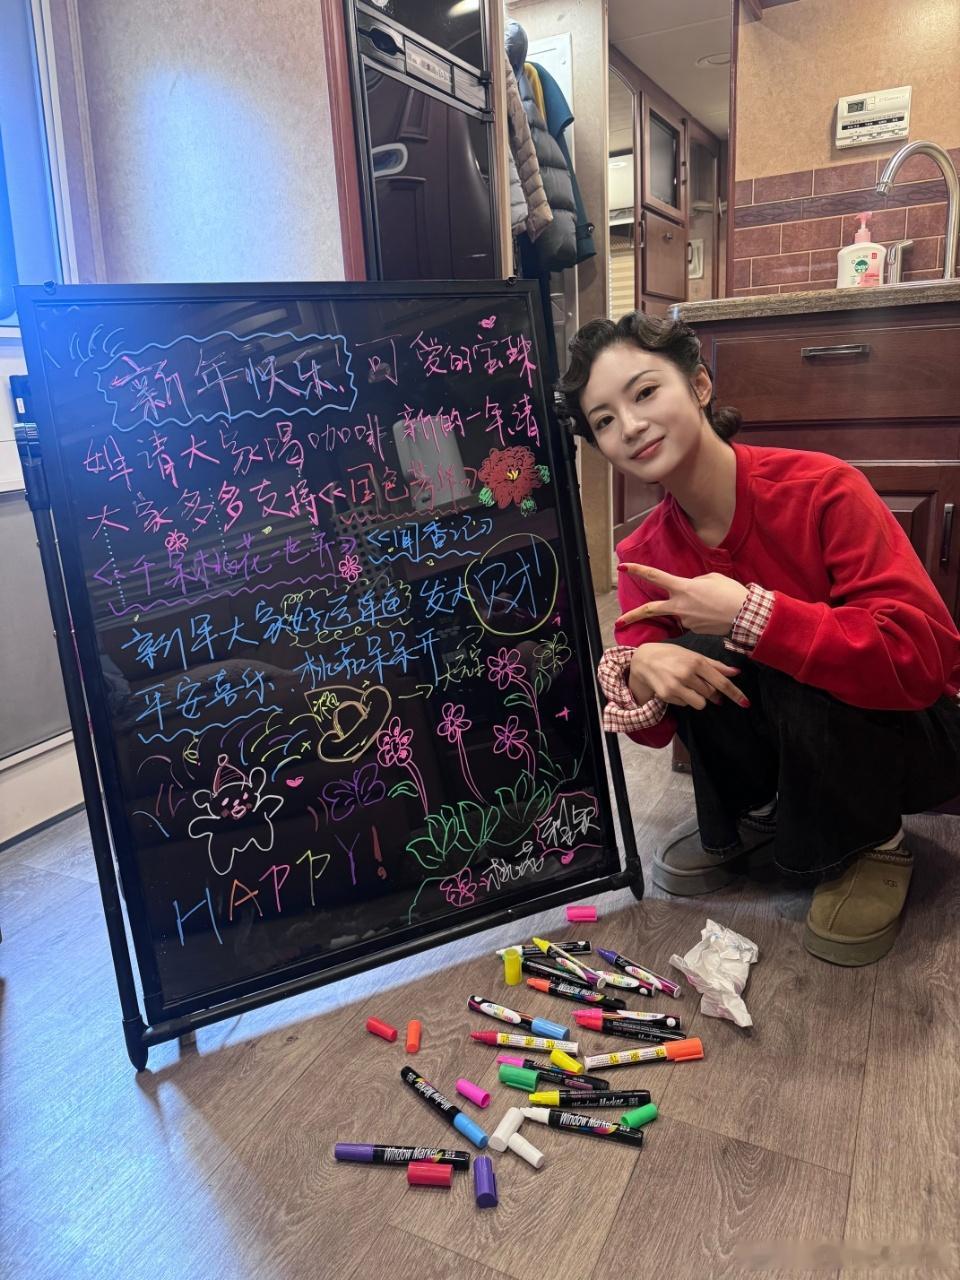 新年快乐！可爱的宝珠
姐请大家喝咖啡.新的一年请
大家多多支持《国色芳华》
《千朵桃花一世开》《闻香记》
新年大家好运连连 发大财！
平安喜乐.桃花朵朵开
HAPPY！
桃花
Window Marker
Window Marker
Window Marker
Window Marker
Window Marker
UGG